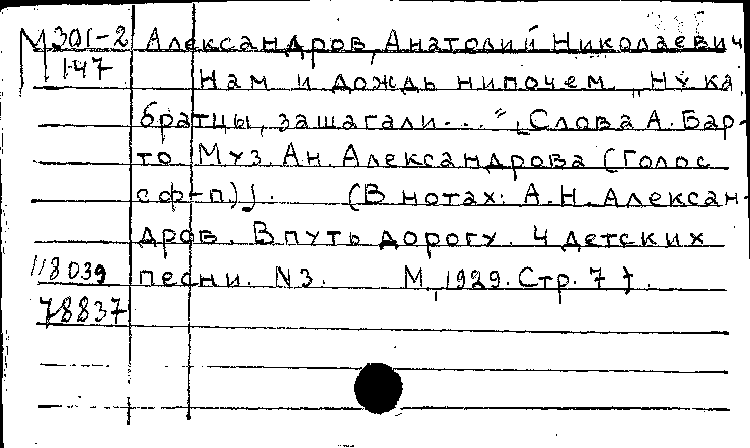 М301-2 Александров, Анатолий Николаевич
147 Нам и дождь нипочем. „Ну ка,
братцы, зашагали...“ [Слова А. Бар-
то. Муз. Ан. Александрова (Голос
с ф-п)]. (В нотах: А.Н. Алексан-
дров. В путь дорогу. 4 детских
118039 песни. N3. М, 1929. Стр. 7).
78837